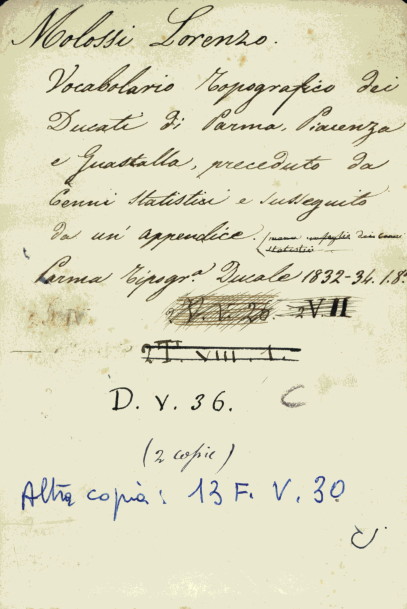 Molossi Lorenzo.
Vocabolario topografico dei
Ducati di Parma, Piacenza
e Guastalla, preceduto da
Cenni statistici e susseguito
da un' appendice. (manca dei cenni
statistici
Parma Tipogr.ª Ducale 1832-34. 1.8º
2 V. V. 26. 2 V. II
2 T. VIII. 1.
D. V. 36.
(2 copie)
Altra copia: 13 F. V. 30